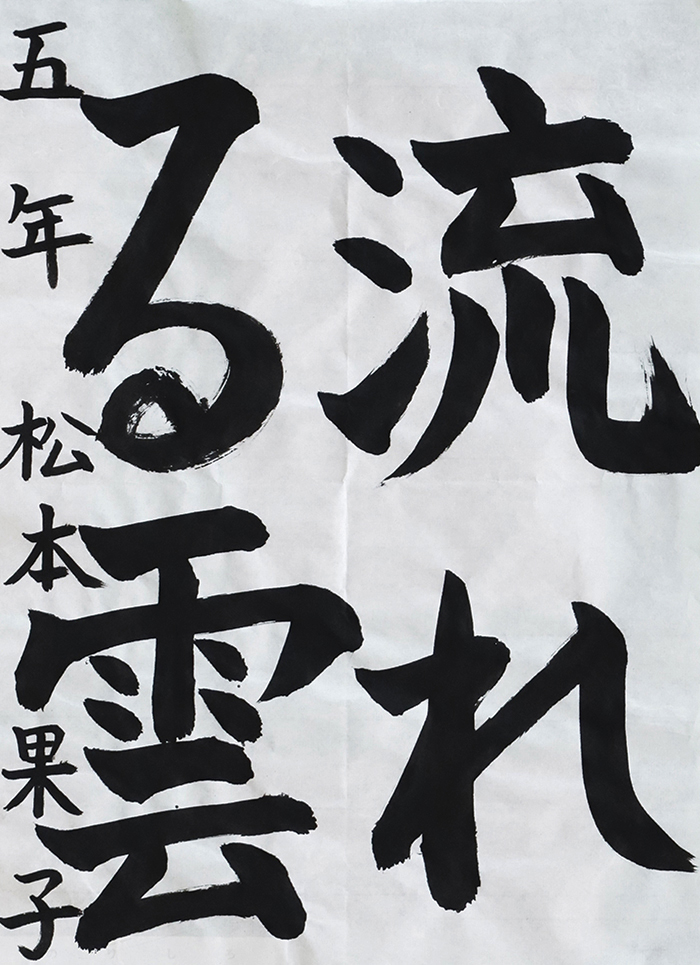 流れ
る雲
五年 松本果子